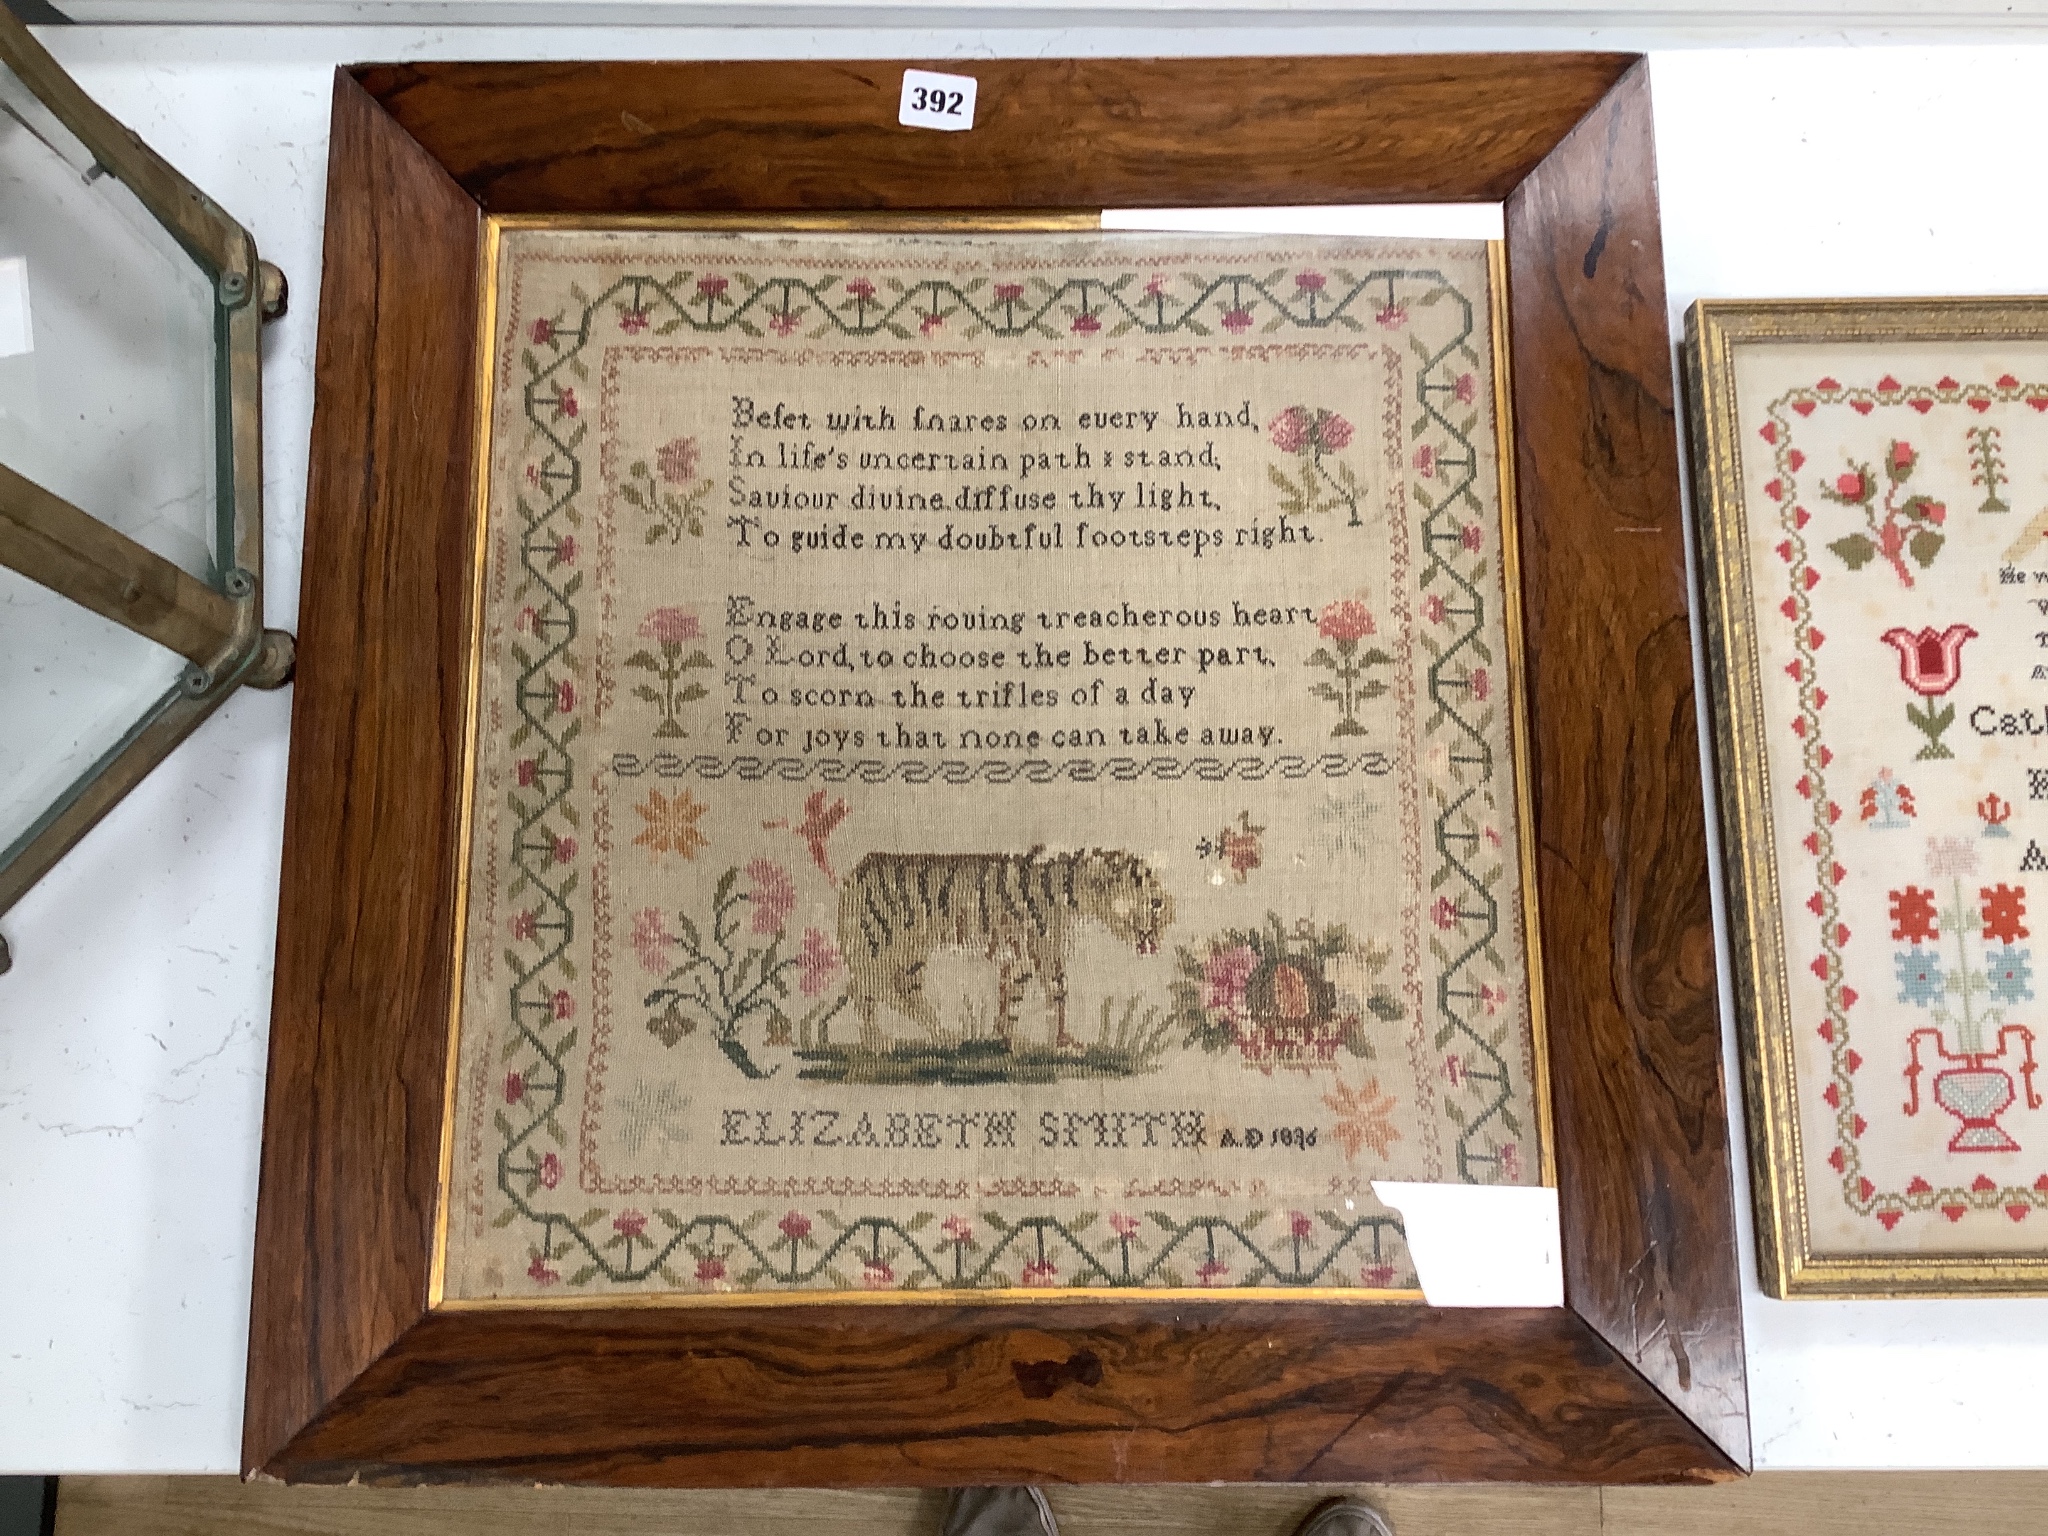 392
Beſet with ſnares on every hand,
In life's uncertain path I stand;
Saviour divine diffuse thy light,
To guide my doubtful footsteps right.
Engage this roving treacherous heart
O Lord, to choose the better part,
To scorn the trifles of a day
For joys that none can take away.
ELIZABETH SMITH A.D 1836
He
Cath